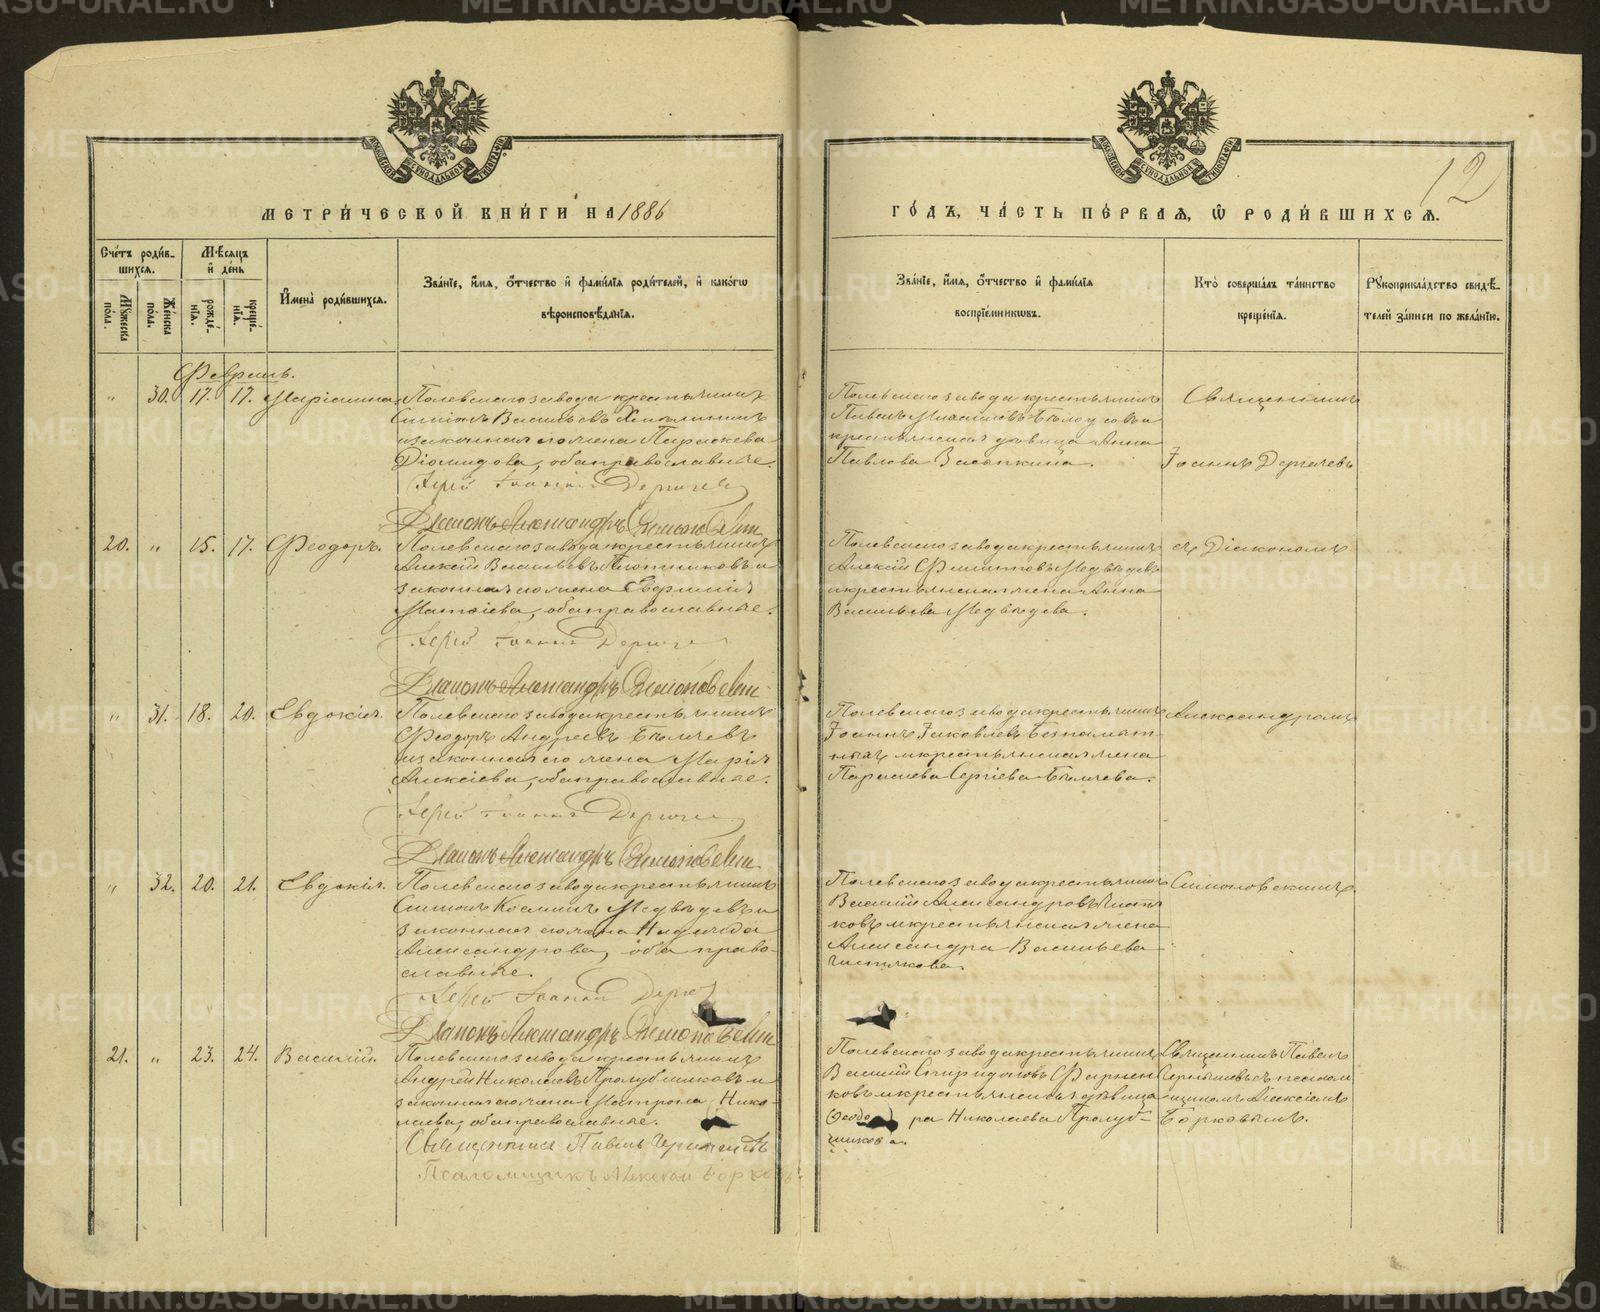 МЕТРИ́ЧЕСКОЙ КНИ́ГИ НА 1886
ГО́ДЪ, ЧА́СТЬ ПЕ́РВАѦ, Ѽ РОДИ́ВШИХСѦ.
12
Сче́тъ роди́в-
шихсѧ.
Мꙋжеска
по́ла.
Же́нска
по́ла.
Мѣ́сѧцъ
и҆ де́нь
рожде́-
нїѧ.
креще́-
нїѧ.
И҆мена̀ роди́вшихсѧ.
Зва́нїе, и҆́мѧ, ѻ҆́тчество и҆ фами́лїѧ роди́телей, и҆ како́гѡ
вѣроисповѣ́данїѧ.
Зва́нїе, и҆́мѧ, ѻ҆́тчество и҆ фами́лїѧ
воспрїе́мникѡвъ.
Кто̀ соверша́лъ та́инство
креще́нїѧ.
Рꙋкоприкла́дство свидѣ́-
телей за́писи по жела́нїю.
Февраль.
" 30. 17. 17. Маріанна.
Полевскаго завода крестьянинъ
Симеонъ Васильевъ
и законная его жена Параскева
Діомидова, оба православные.
Іерей Іоаннъ Дергачевъ
Діаконъ Александръ Симоновскій
Полевскаго завода крестьянинъ
Павелъ Михайловъ и
крестьянская дѣвица Анна
Павлова
Священникъ
Іоаннъ Дергачевъ
20. " 15. 17. Феодоръ.
Полевскаго завода крестьянинъ
Алексій Васильевъ Плотниковъ и
законная его жена Евфимія
Матѳіева, оба православные.
Іерей Іоаннъ Дергачевъ
Діаконъ Александръ Симоновскій
Полевскаго завода крестьянинъ
Алексій Филипповъ Медвѣдевъ
и крестьянская жена Анна
Васильева Медвѣдева.
съ Діакономъ
" 31. 18. 20. Евдокія.
Полевскаго завода крестьянинъ
Феодоръ Андреевъ Бѣлевъ
и законная его жена Марія
Алексіева, оба православные.
Іерей Іоаннъ Дергачевъ
Діаконъ Александръ Симоновскій
Полевскаго завода крестьянинъ
Іоаннъ Іаковлевъ Безпамят-
ныхъ и крестьянская жена
Параскева Сергіева Бѣлева.
Александромъ
" 32. 20. 21. Евдокія.
Полевскаго завода крестьянинъ
Симеонъ Косминъ Медвѣдевъ и
законная его жена Надежда
Александрова, оба право-
славные.
Іерей Іоаннъ Дергачевъ
Діаконъ Александръ Симоновскій
Полевскаго завода крестьянинъ
Василій Александровъ Чистя-
ковъ и крестьянская жена
Александра Васильева
Чистякова.
Симоновскимъ.
21. " 23. 24. Василій.
Полевскаго завода крестьянинъ
Андрей Николаевъ Пролубщиковъ и
законная его жена Матрона Нико-
лаева, оба православные.
Священникъ Павелъ Чернышевъ
Псаломщикъ Алексій Борковъ
Полевскаго завода крестьянинъ
Василій Спиридоновъ
ковъ и крестьянская дѣвица
Ѳеодора Николаева Пролуб-
щикова.
Священникъ Павелъ
Чернышевъ съ псалом-
щикомъ Алексіемъ
Борковымъ.
METRIKI.GASO-URAL.RU